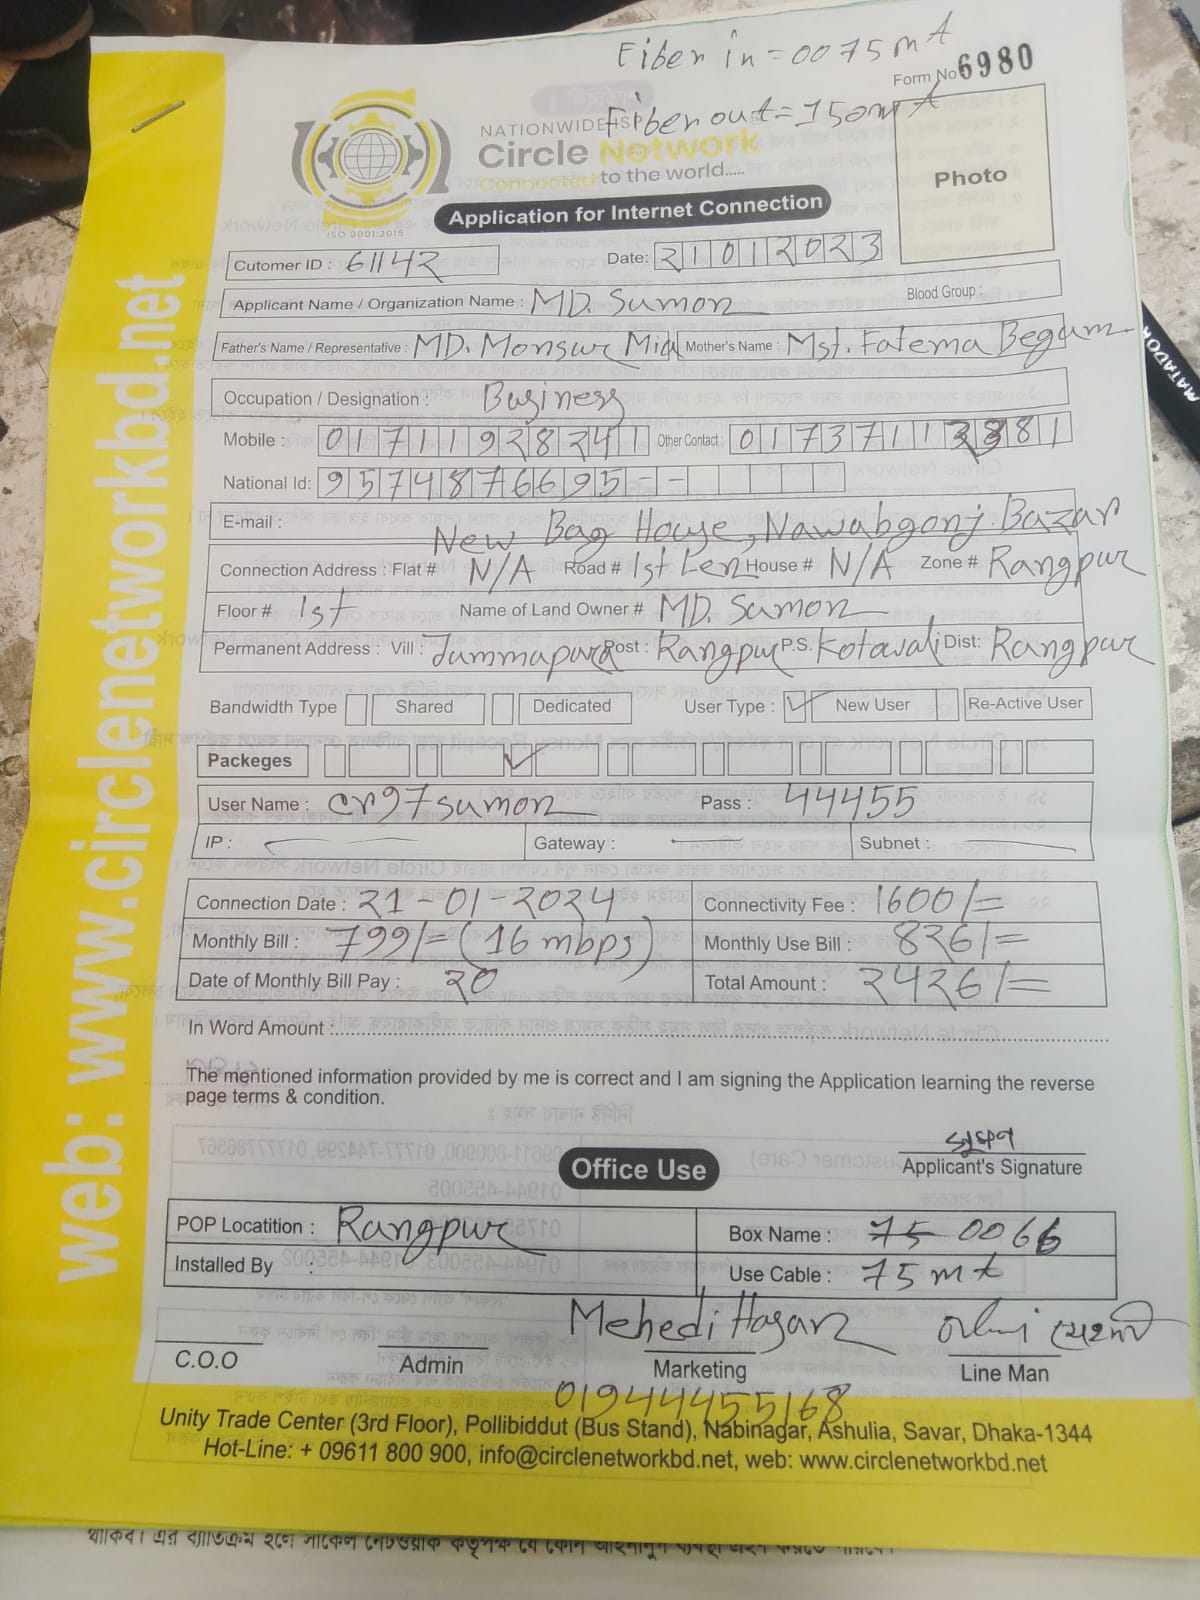 Fiber in = 0075 mt
Form No 6980
Fiber out = 150 mt
NATIONWIDE ISP
Circle Network
Connected to the world.....
ISO 9001:2015
Photo
Application for Internet Connection
Cutomer ID : 61142 Date: 21012023
Applicant Name / Organization Name : MD. Sumon Blood Group :
Father's Name / Representative : MD. Monsur Mia Mother's Name : Mst. Fatema Begum
Occupation / Designation : Business
Mobile : 01711928241 Other Contact : 0173711 81
National Id: 9574876695--
E-mail :
New Bag House, Nawabgonj Bazar
Connection Address : Flat # N/A Road # 1st Len House # N/A Zone # Rangpur
Floor # 1st Name of Land Owner # MD. Sumon
Permanent Address : Vill : Jummapara Post : Rangpur P.S. Kotawali Dist: Rangpur
Bandwidth Type Shared Dedicated User Type : ✓ New User Re-Active User
Packeges ✓
User Name : cr97sumon Pass : 44455
IP : Gateway : Subnet :
Connection Date : 21-01-2024 Connectivity Fee : 1600/=
Monthly Bill : 799/= (16 mbps) Monthly Use Bill : 826/=
Date of Monthly Bill Pay : 20 Total Amount : 2426/=
In Word Amount :
The mentioned information provided by me is correct and I am signing the Application learning the reverse
page terms & condition.
সুমন
Applicant's Signature
Office Use
POP Locatition : Rangpur Box Name : 75 0066
Installed By : Use Cable : 75 mt
Mehedi Hasan
C.O.O Admin Marketing Line Man
01944455168
Unity Trade Center (3rd Floor), Pollibiddut (Bus Stand), Nabinagar, Ashulia, Savar, Dhaka-1344
Hot-Line: + 09611 800 900, info@circlenetworkbd.net, web: www.circlenetworkbd.net
web: www.circlenetworkbd.net
MATADOR